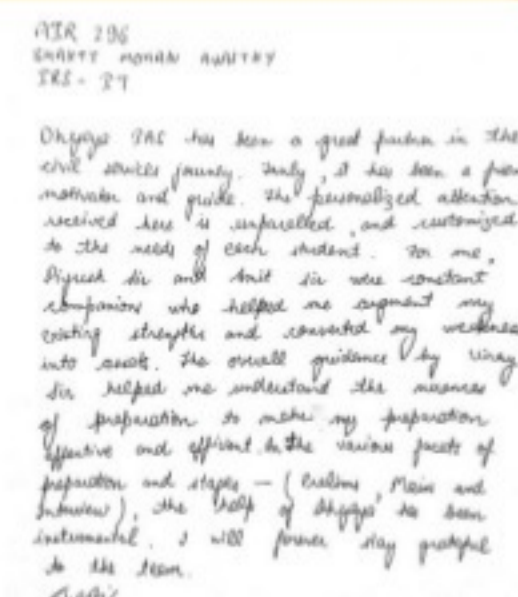 AIR 296
SHAKTI MOHAN AWASTHY
IRS - IT
Dhyeya IAS has been a great partner in the
civil services journey. Truly, it has been a
motivator and guide. The personalized attention
received here is unparalled and customized
to the needs of each student. For me,
sir and Amit sir were constant
companions who helped me augment my
existing strengths and converted my weakness
into assets. The overall guidance by Vinay
Sir helped me understand the nuances
of preparation to make my preparation
effective and efficient. In the various facets of
preparation and stages - (Prelims, Mains and
Interview), the help of Dhyeya has been
instrumental. I will forever stay grateful
to the team.